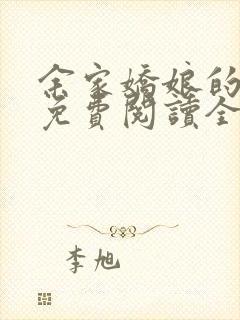 余家嬌娘的
免費閱讀全
李旭